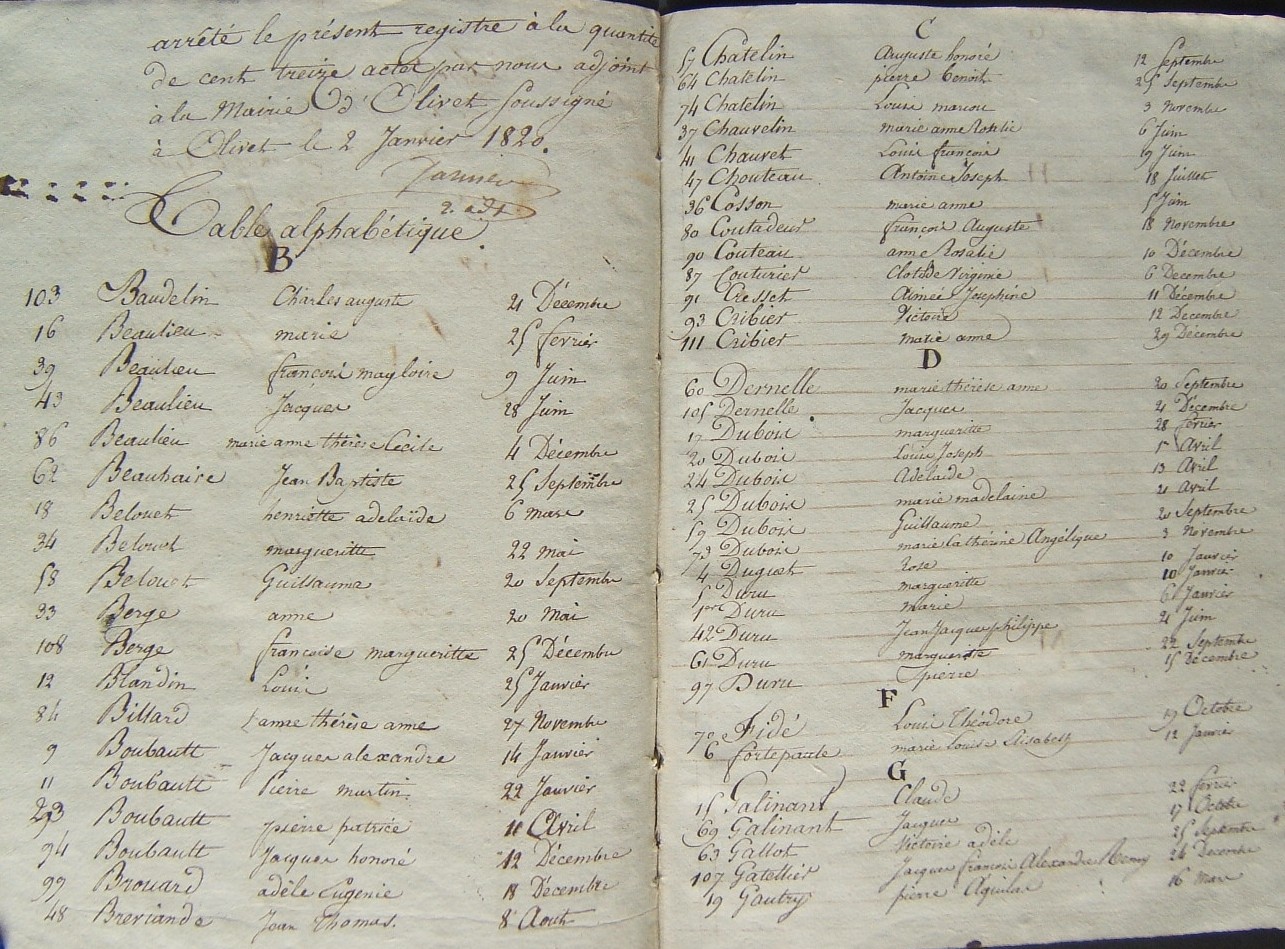 arrêté le présent registre à la quantité
de cent treize actes par nous adjoint
à la Mairie d'Olivet soussigné
à Olivet le 2 Janvier 1820.
2. adt
Table alphabétique
B
103 Baudelin Charles auguste 21 Décembre
16 Beaulieu marie 25 fevrier
39 Beaulieu françois magloire 9 Juin
43 Beaulieu Jacques 28 Juin
86 Beaulieu marie anne thérèse Cécile 4 Décembre
62 Beauhaire Jean Baptiste 25 Septembre
18 Belouet henriette adelaïde 6 mars
34 Belouet margueritte 22 mai
58 Belouet Guillaume 20 Septembre
33 Berge anne 20 mai
108 Berge françoise margueritte 25 Décembre
12 Blandin Louis 25 Janvier
84 Billard anne thérèse anne 27 Novembre
9 Boubault Jacques alexandre 14 Janvier
11 Boubault Pierre martin 22 Janvier
23 Boubault pierre patrice 11 Avril
94 Boubault Jacques honoré 12 Décembre
99 Brouard adèle Eugenie 18 Décembre
48 Breviande Jean Thomas. 8 Aout
C
57 Chatelin Auguste honoré 12 Septembre
64 Chatelin pierre benoit 25 Septembre
74 Chatelin Louis marcou 3 Novembre
37 Chauvelin marie anne Rosalie 6 Juin
41 Chauvet Louis françois 19 Juin
47 Chouteau Antoine Joseph 18 Juillet
36 Cosson marie anne 5 Juin
80 Coutadeur françois Auguste 18 Novembre
90 Couteau anne Rosalie 10 Décembre
87 Couturier Clotilde Virginie 6 Decembre
91 Cresset Aimée Josephine 11 Décembre
93 Cribier Victoire 12 Decembre
111 Cribier marie anne 29 Décembre
D
60 Dernelle marie thérèse anne 20 Septembre
105 Dernelle Jacques 21 Décembre
17 Dubois margueritte 28 fevrier
20 Dubois Louis Joseph 5 Avril
24 Dubois Adelaide 13 Avril
25 Dubois marie madelaine 21 Avril
59 Dubois Guillaume 20 Septembre
73 Dubois marie Catherine Angélique 3 Novembre
4 Duguet Rose 10 Janvier
5 Duru margueritte 10 Janvier
1er Duru marie 6 Janvier
42 Duru Jean Jacques philippe 21 Juin
61 Duru margueritte 22 Septembre
97 Duru pierre 15 Décembre
F
70 Fidé Louis Théodore 19 Octobre
6 fortepaule marie Louise Elisabeth 12 Janvier
G
15 Galinant Claude 22 fevrier
69 Galinant Jacques 17 Octobre
63 Gallot Victoire adèle 25 Septembre
107 Gatellier Jacques françois Alexandre Remy 24 Decembre
19 Gautry pierre Aquilas 16 Mars